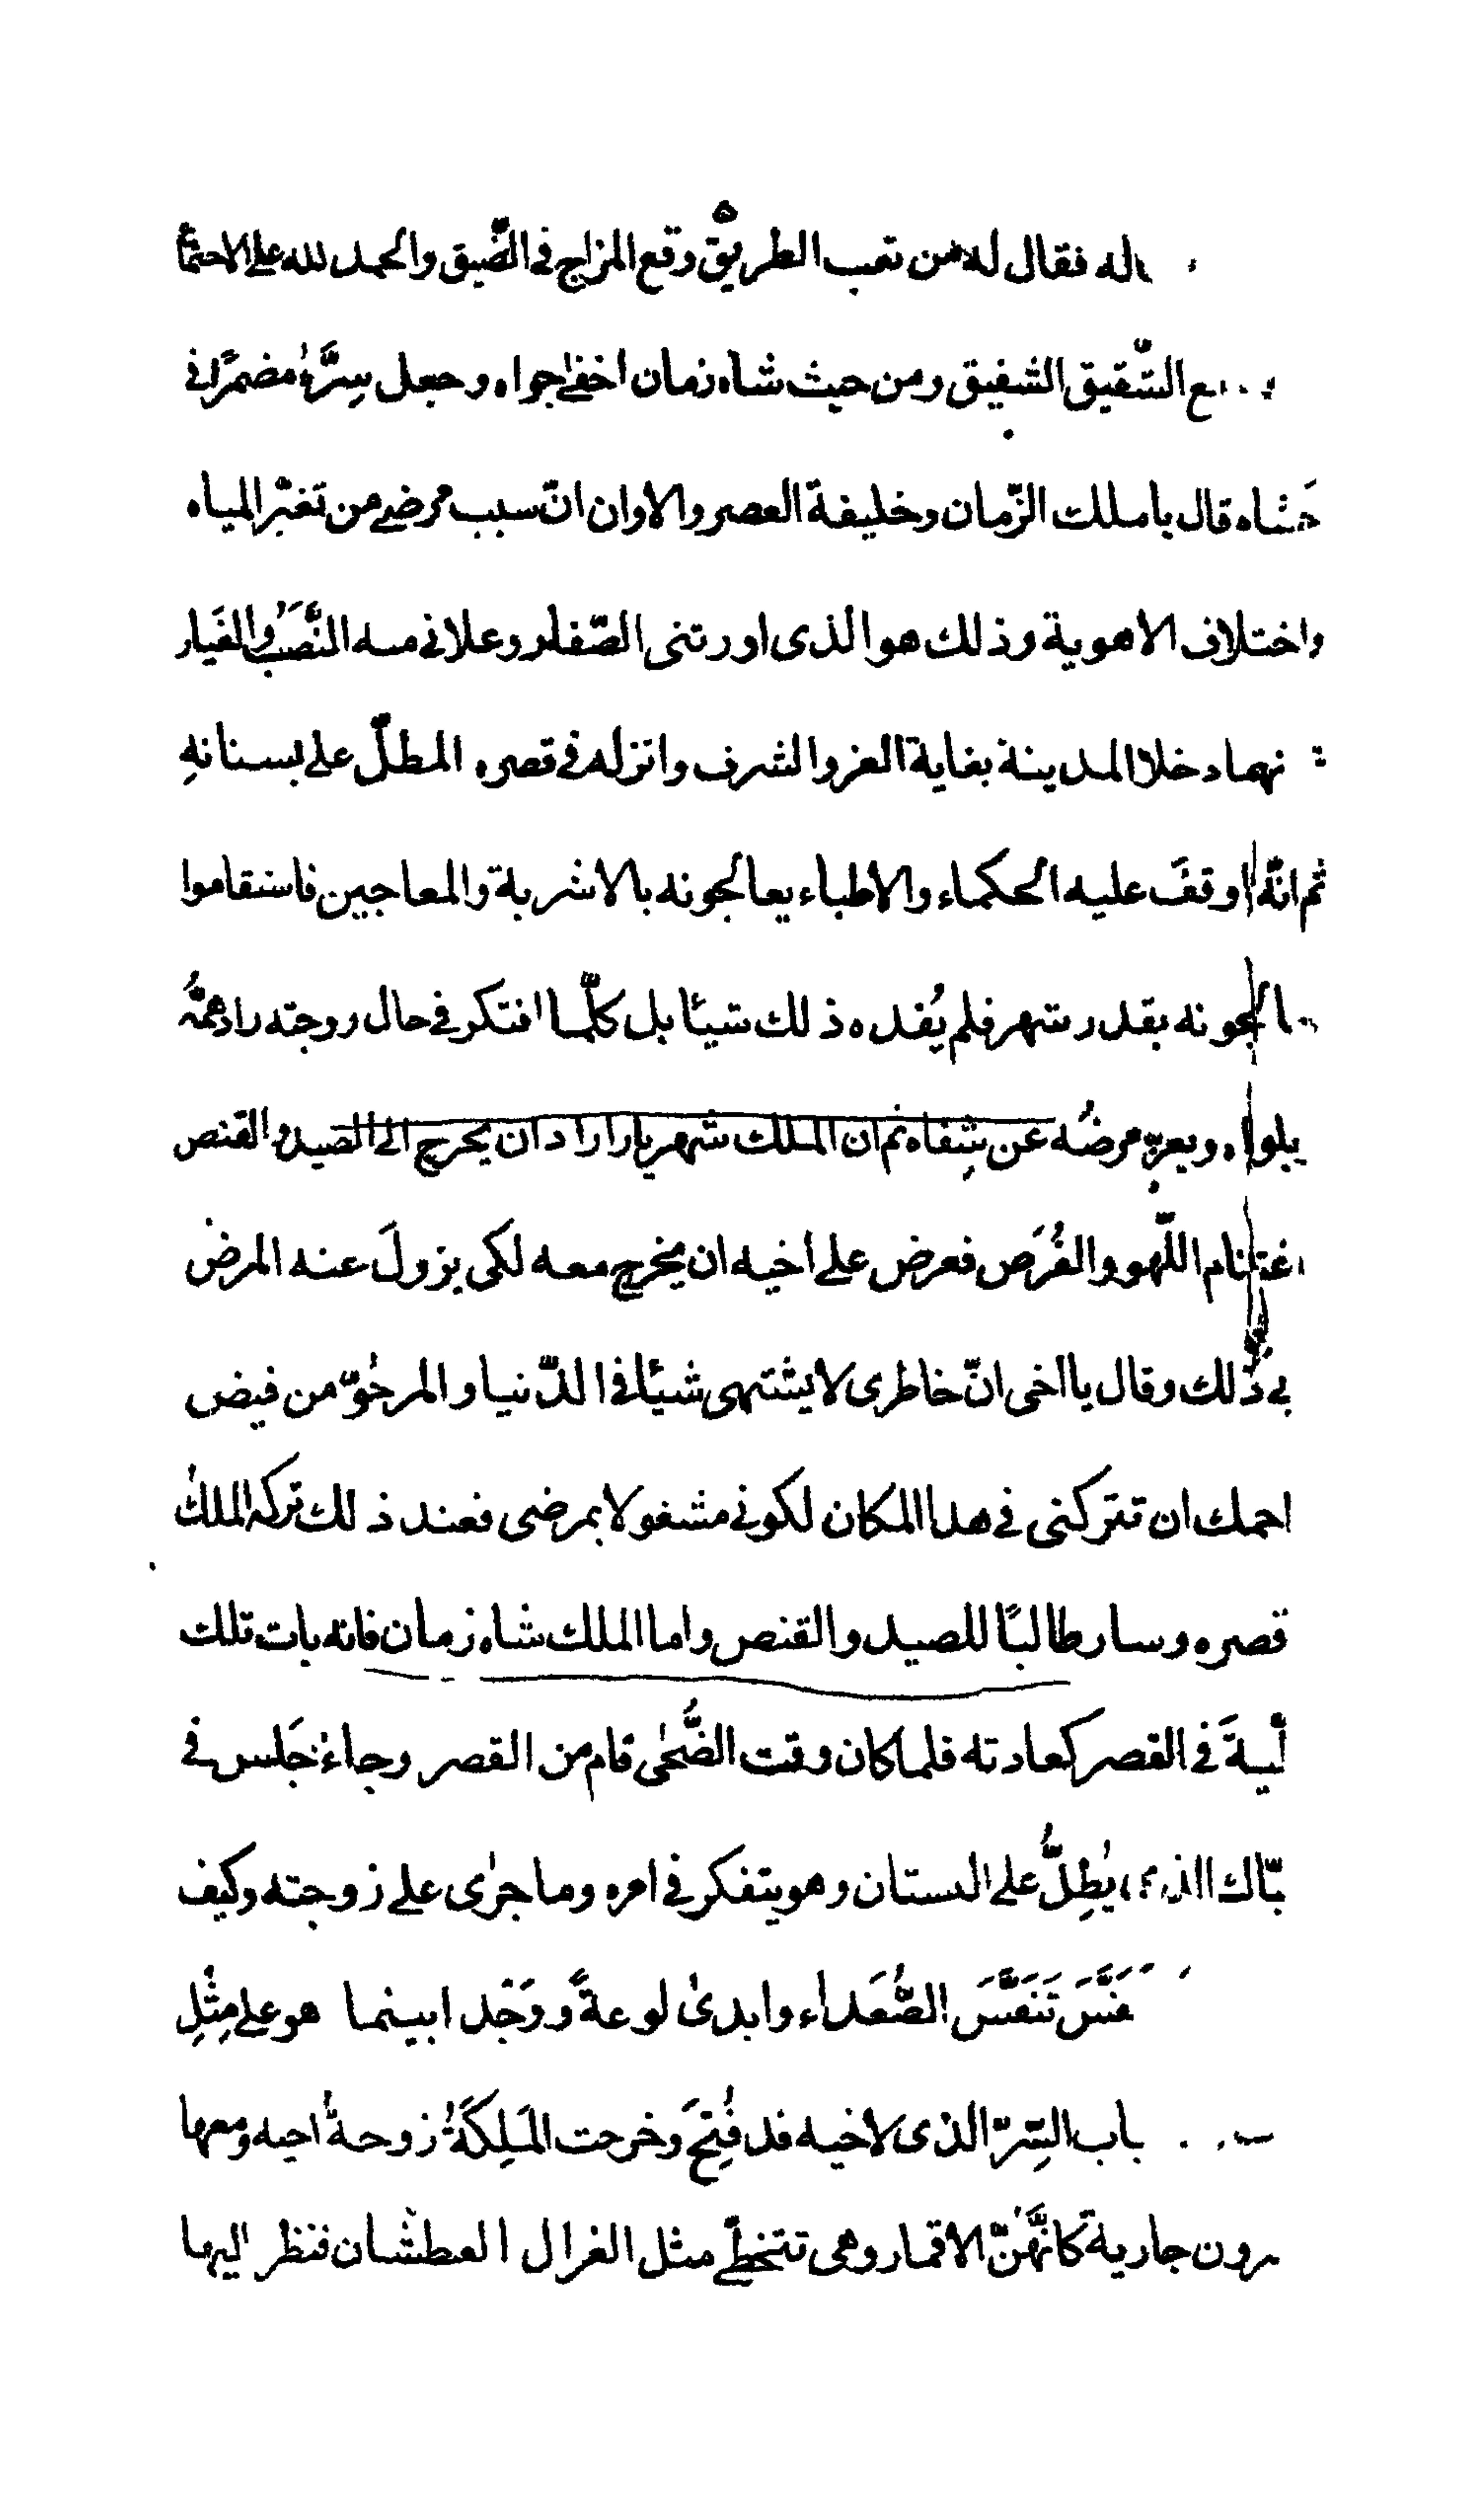 اله فقال له من تعب الطريق وقع المزاج في الضّيق والحمد لله على الاجتما
ع الشّقيق الشفيق ومن حيث شاه زمان اخفى جواه وجعل سِرَّهُ مضمرًا في
حَشاه قال يا ملك الزّمان وخليفة العصر والاوان انّ سبب مرضي من تغيّر المياه
واختلاف الاهوية وذلك هو الذى اورتنى الصّفار وعلانى مسه النَّصَبُ والغيار
نهما دخلا المدينة بغاية العز والشرف وانزله في قصره المطلّ على بستانهِ
ثم انّه اوقفَ عليه الحكماء والاطباء يعالجونه بالاشربة والمعاجين فاستقاموا
الجونه بقدر شهر فلم يُفده ذلك شيئا بل كلّما افتكر في حال زوجته زاد همّهُ
بلواه ويعزّ مرضُه عن شِفاه ثم ان الملك شهريار اراد ان يخرج الى الصيد والقنص
اغتنام اللّهو والفُرَص فعرض على اخيه ان يخرج معه لكى يزولَ عنه المرض
بى ذلك وقال يا اخى انّ خاطرى لا يشتهى شيئا في الدّنيا والمرجُوّ من فيض
احمك ان تتركنى في هدا المكان لكونى مشغولا بمرضى فعند ذلك تركه الملكُ
قصره وسار طالبًا للصيد والقنص واما الملك شاه زمان فانه بات تلك
ليلةَ في القصر كعادته فلما كان وقت الضُّحٰى قام من القصر وجاءَ جَلس في
بّاك الذى يُطِلُّ على البستان وهو يتفكر في امره وما جرٰى على زوجته وكيف
تَنَفَّسَ الصُّعَداء وابدىٰ لوعةً ووَجْد ابينما هو على مِثلِ
باب السِرّ الذى لاخيه قد فُتِحَ وخرجت المَلِكَةُ زوجةُ اخيه ومعها
رون جارية كانّهُنّ الاقمار وهى تتخطّى مثل الغزال العطشان فنظر اليها